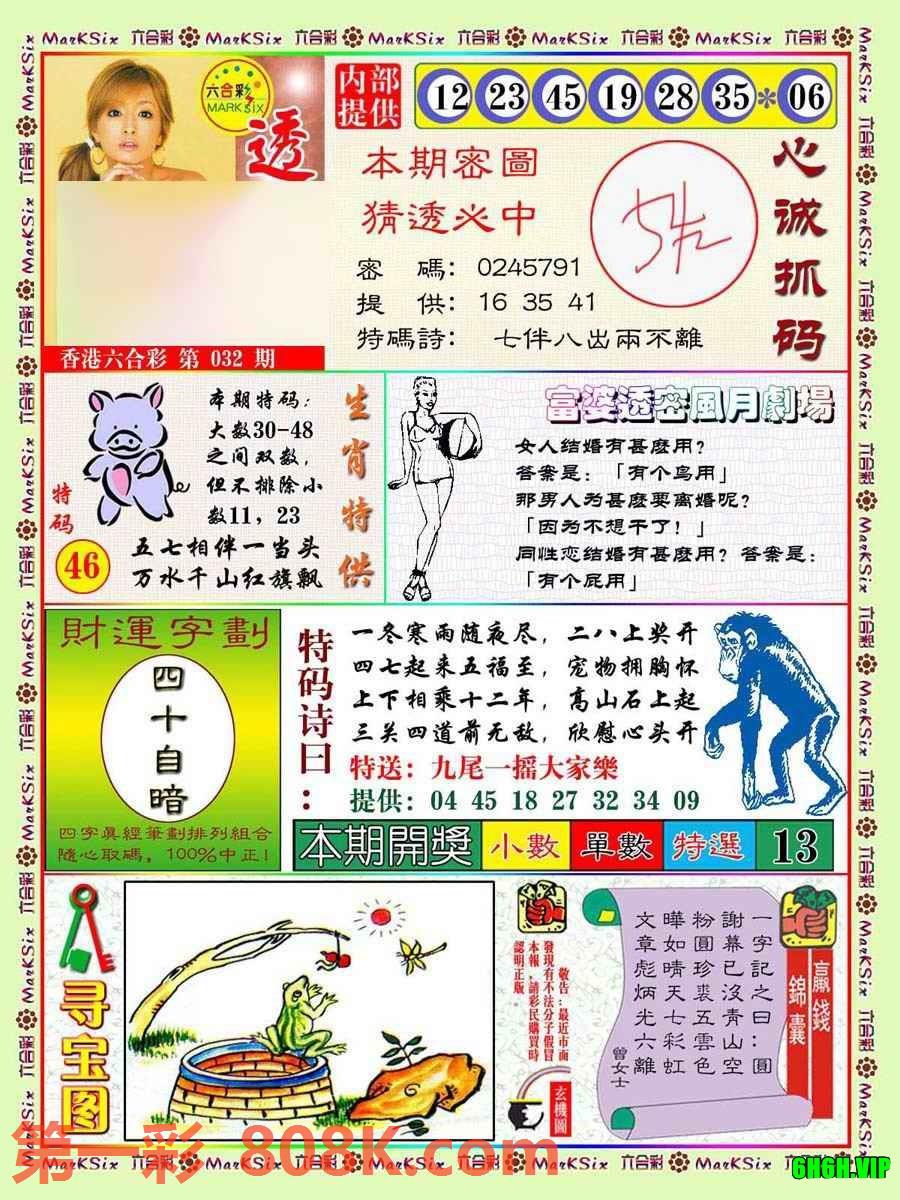 MarKSix 六合彩 MarKSix 六合彩 MarKSix 六合彩 MarKSix 六合彩 MarKSix 六合彩
六合彩
MARK SIX
透
内部
提供
12 23 45 19 28 35 * 06
本期密圖
猜透必中
密 碼: 0245791
提 供: 16 35 41
特碼詩: 七伴八出兩不離
心诚抓码
香港六合彩 第 032 期
本期特码:
大数30-48
之间双数,
但不排除小
数11, 23
五七相伴一当头
万水千山红旗飘
生肖特供
特码
46
富婆透密風月劇場
女人结婚有甚麼用?
答案是:「有个鸟用」
那男人为甚麼要离婚呢?
「因为不想干了!」
同性恋结婚有甚麼用? 答案是:
「有个屁用」
財運字劃
四十自暗
四字真經筆劃排列組合
隨心取碼, 100%中正!
特码诗曰:
一冬寒雨随夜尽, 二八上奖开
四七起来五福至, 宠物拥胸怀
上下相乘十二年, 高山石上起
三关四道前无敌, 欣慰心头开
特送: 九尾一摇大家樂
提供: 04 45 18 27 32 34 09
本期開獎 小數 單數 特選 13
寻宝图
敬告:最近市面
發現有不法分子假冒
本報,請彩民購買時
認明正版。
玄機圖
一字記之曰:圓
謝幕已沒青山空
粉圓珍裘五雲色
曄如晴天七彩虹
文章彪炳光六離
曾女士
贏錢
錦囊
第一彩 808K.com
6H6H.VIP
MarKSix 六合彩 MarKSix 六合彩 MarKSix 六合彩 MarKSix 六合彩 MarKSix